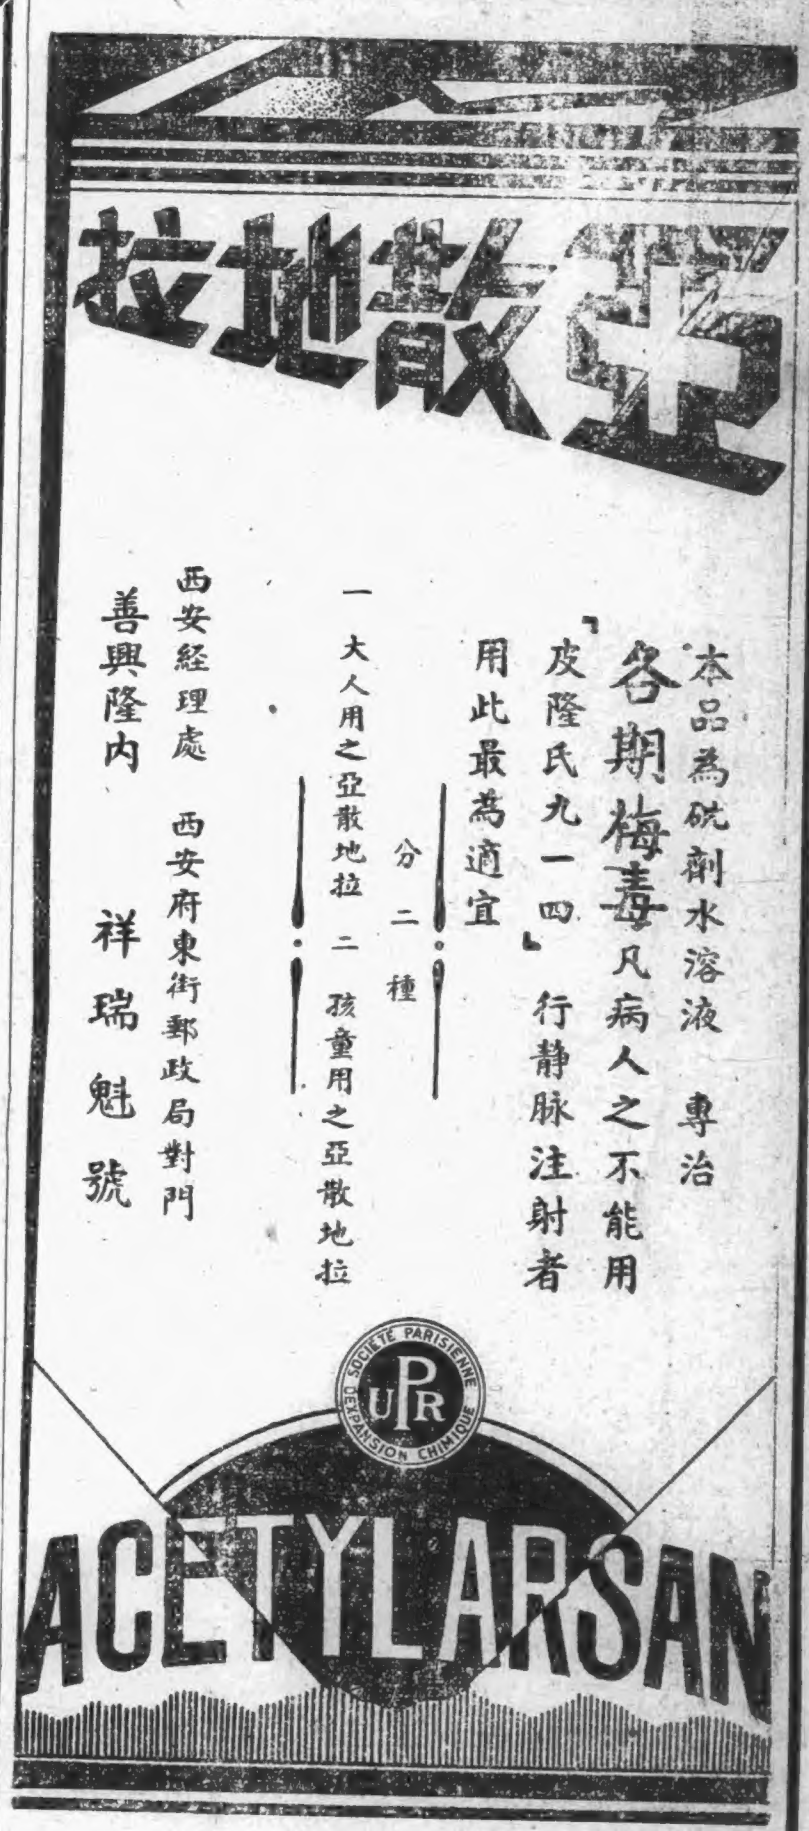 亞散地拉
本品為砒劑水溶液　專治
各期梅毒凡病人之不能用
『皮隆氏九一四』行静脉注射者
用此最為適宜
分二種
一 大人用之亞散地拉 二 孩童用之亞散地拉
西安経理處 西安府東街郵政局對門
善興隆内 祥瑞魁號
SOCIÉTÉ PARISIENNE
D'EXPANSION CHIMIQUE
UPR
ACETYLARSAN